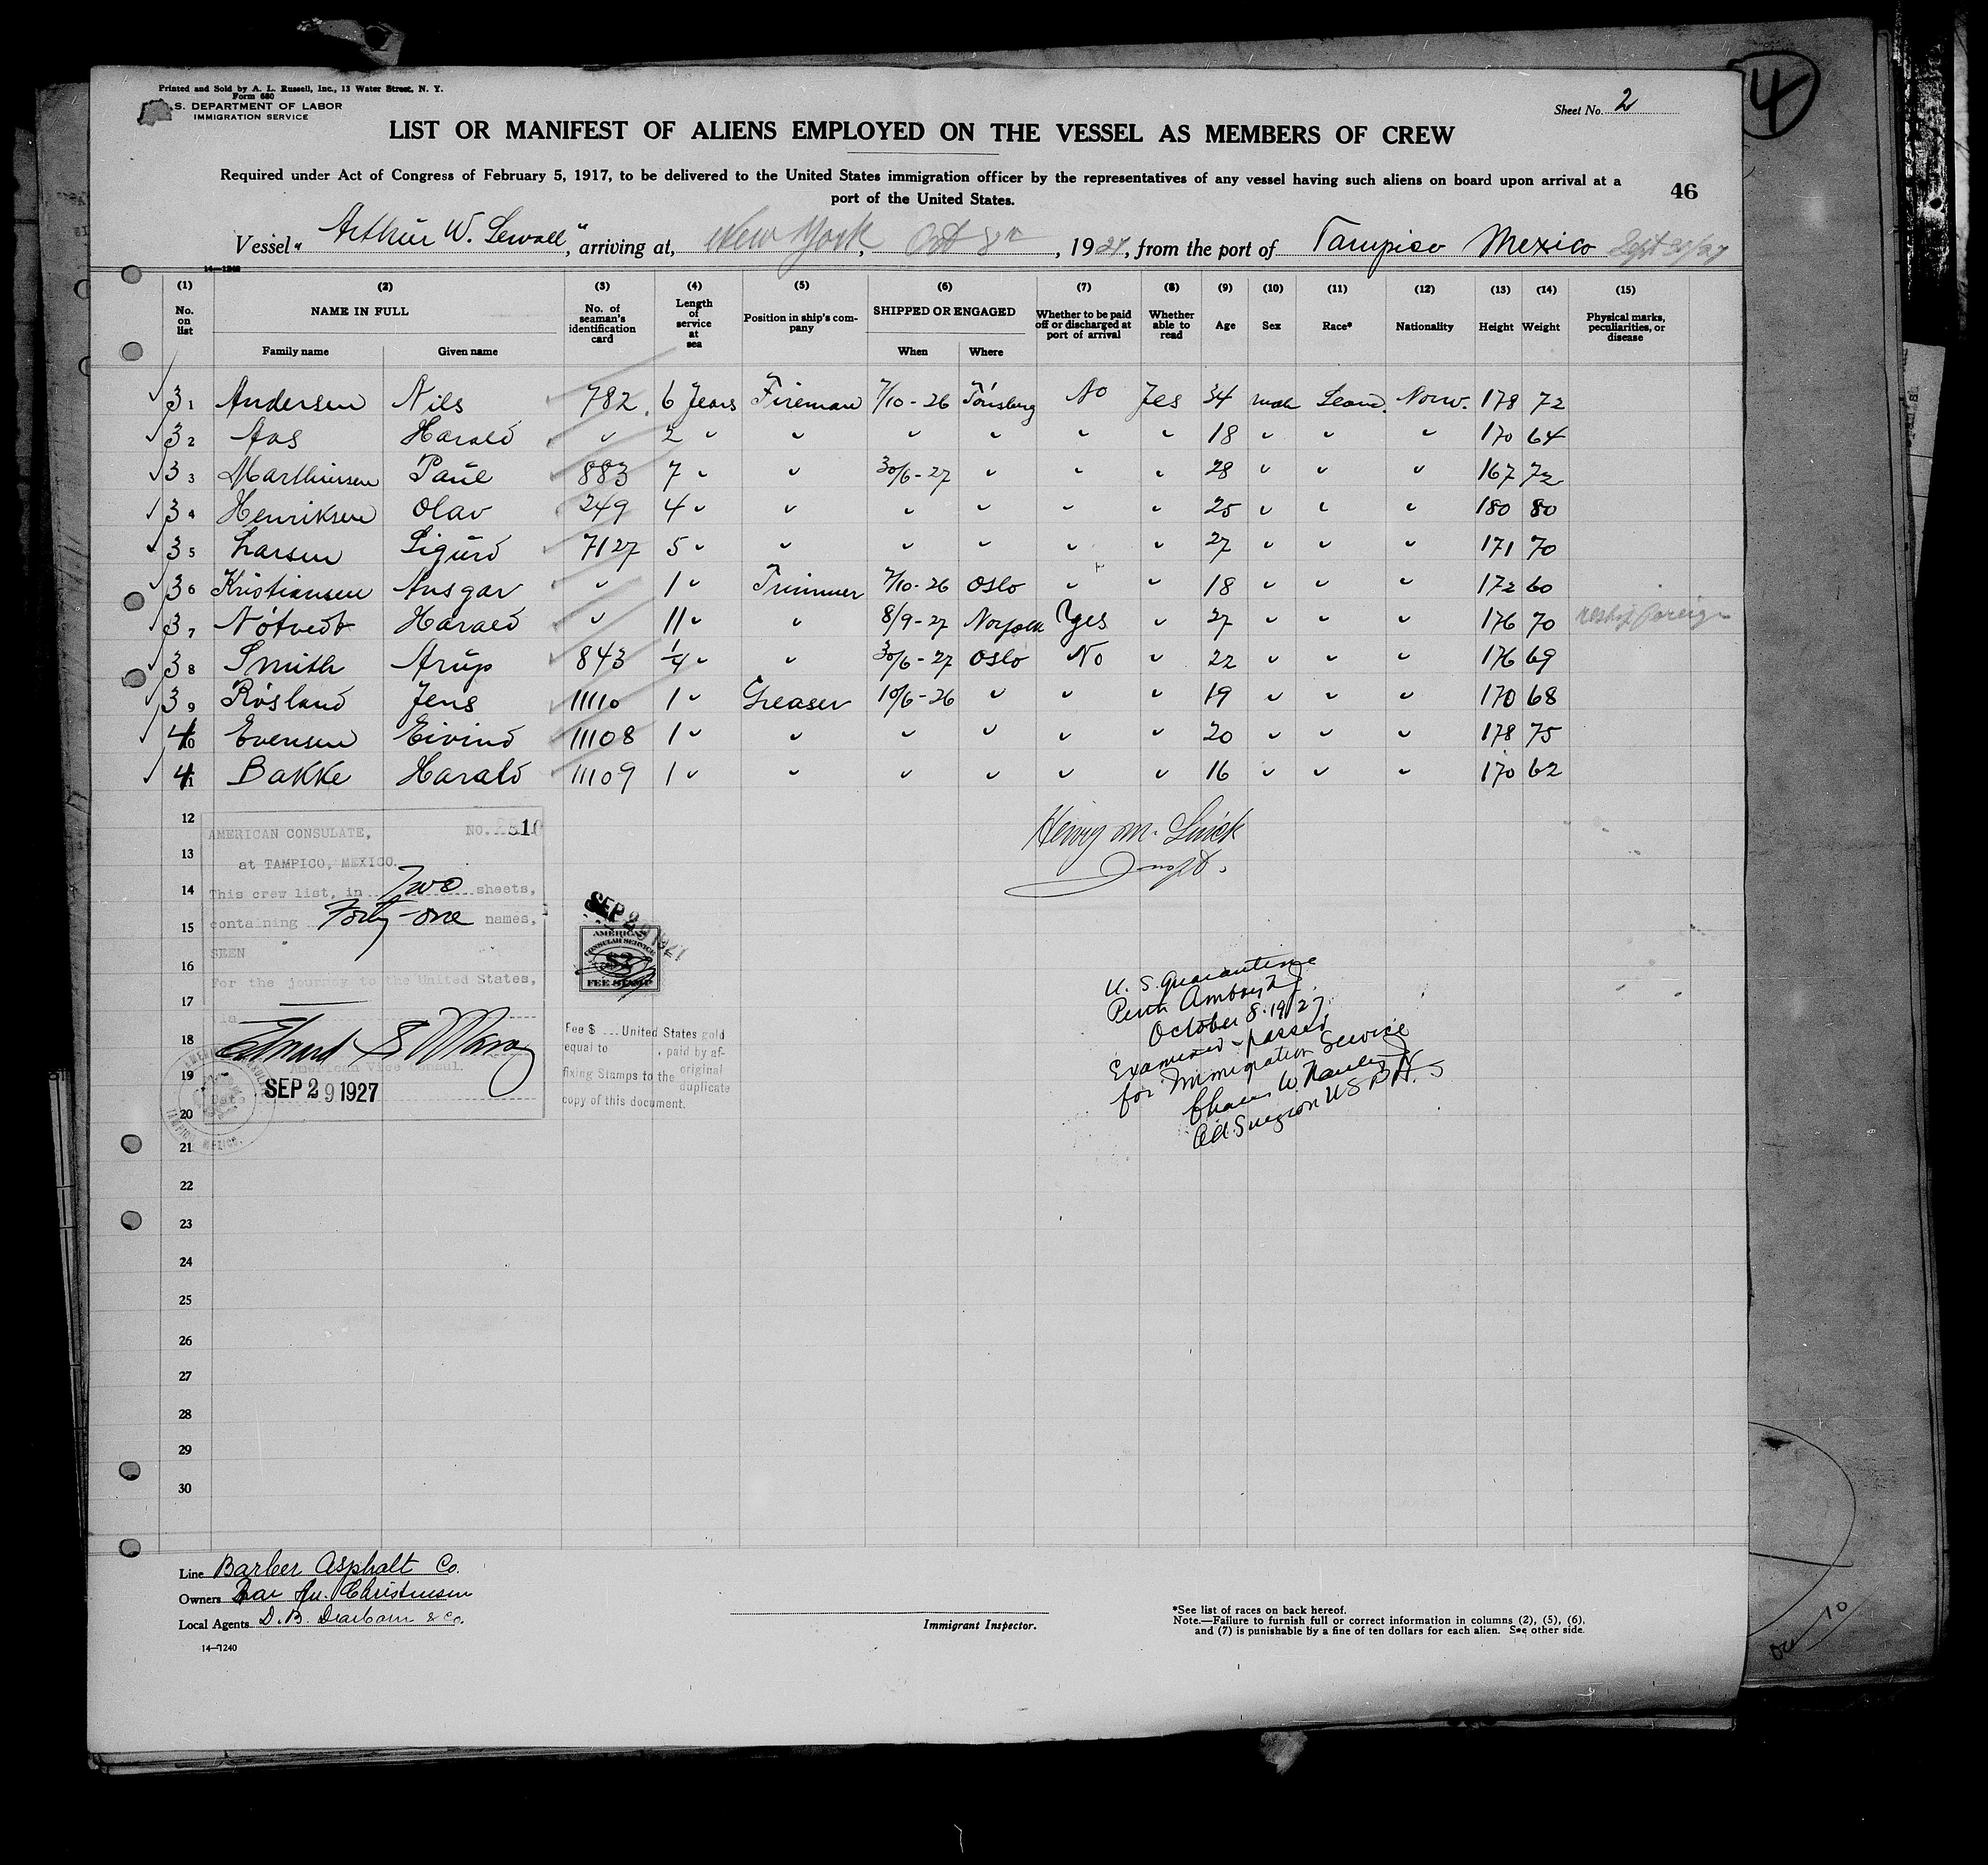 Printed and Sold by A. L. Russell, Inc., 13 Water Street, N. Y.
Form 680
S. DEPARTMENT OF LABOR
IMMIGRATION SERVICE
Sheet No. 2
4
LIST OR MANIFEST OF ALIENS EMPLOYED ON THE VESSEL AS MEMBERS OF CREW
Required under Act of Congress of February 5, 1917, to be delivered to the United States immigration officer by the representatives of any vessel having such aliens on board upon arrival at a
port of the United States.
46
Vessel "Arthur W. Sewall", arriving at, New York, Oct 8th, 1927, from the port of Tampico Mexico Sept 30/27
14-1240
(1) (2) (3) (4) (5) (6) (7) (8) (9) (10) (11) (12) (13) (14) (15)
No. on list NAME IN FULL Family name Given name No. of seaman's identification card Length of service at sea Position in ship's company SHIPPED OR ENGAGED When Where Whether to be paid off or discharged at port of arrival Whether able to read Age Sex Race* Nationality Height Weight Physical marks, peculiarities, or disease
31 Andersen Nils 782 6 Years Fireman 7/10-26 Tönsberg No Yes 34 male Scand. Norw. 178 72
32 Aas Harald " 2 " " " " " " 18 " " " 170 64
33 Marthinsen Paul 883 7 " " 30/6-27 " " " 28 " " " 167 72
34 Henriksen Olav 249 4 " " " " " " 25 " " " 180 80
35 Larsen Sigurd 7127 5 " " " " " " 27 " " " 171 70
36 Kristiansen Ansgar " 1 " Trimmer 7/10-26 Oslo " " 18 " " " 172 60
37 Nötvedt Harald " 11 " " 8/9-27 Norfolk Yes " 27 " " " 176 70 reshipf foreign
38 Smith Arup 843 1/4 " " 30/6-27 Oslo No " 22 " " " 176 69
39 Rösland Jens 11110 1 " Greaser 10/6-26 " " " 19 " " " 170 68
40 Evensen Eivind 11108 1 " " " " " " 20 " " " 178 75
41 Bakke Harald 11109 1 " " " " " " 16 " " " 170 62
12
13
14
15
16
17
18
19
20
21
22
23
24
25
26
27
28
29
30
AMERICAN CONSULATE, NO. 810
at TAMPICO, MEXICO.
This crew list, in Two sheets,
containing Forty-one names,
SEEN
For the journey to the United States,
via
American Vice Consul.
SEP 29 1927
SEP 29 1927
AMERICAN
CONSULAR SERVICE
$2
FEE STAMP
Fee $ ... United States gold
equal to . paid by af-
fixing Stamps to the original
duplicate
copy of this document.
Henry M.
Inspt.
U. S. Quarantine
Perth Amboy N.J.
October 8. 1927
Examined - passed
for Immigration Service
W.
Surgeon U S P H S
Line Barber Asphalt Co.
Owners Christensen
Local Agents D. B. Dearborn & Co.
14-1240
Immigrant Inspector.
*See list of races on back hereof.
Note.—Failure to furnish full or correct information in columns (2), (5), (6),
and (7) is punishable by a fine of ten dollars for each alien. See other side.
10